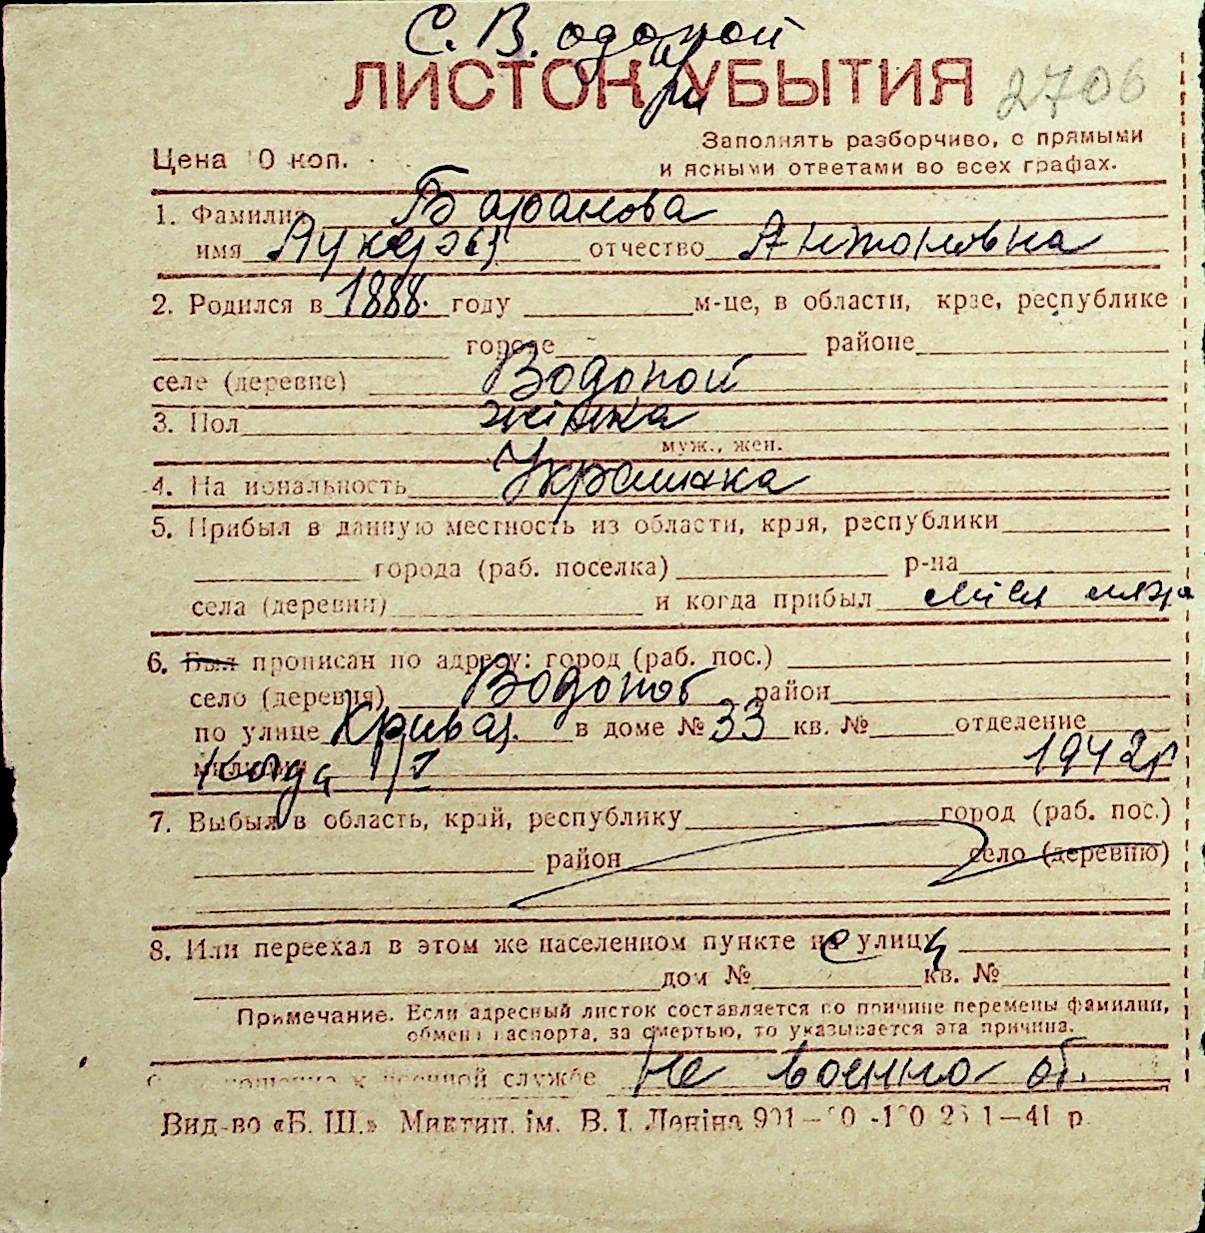 С. Водопой
ЛИСТОК УБЫТИЯ 2706
Заполнять разборчиво, с прямыми
Цена 0 коп. и ясными ответами во всех графах.
1. Фамилия Баранова
имя отчество Антоновна
2. Родился в 1888. году м-це, в области, крае, республике
городе районе
селе (деревне) Водопой
3. Пол жінка
муж., жен.
4. Национальность Украинка
5. Прибыл в данную местность из области, края, республики
города (раб. поселка) р-на
села (деревни) и когда прибыл
6. Был прописан по адресу: город (раб. пос.)
село (деревня) Водопой район
по улице Кривая в доме № 33 кв. № отделение
милиции Когда 1942 г
7. Выбыл в область, край, республику город (раб. пос.)
район село (деревню)
8. Или переехал в этом же населенном пункте на улицу
дом № кв. №
Примечание. Если адресный листок составляется по причине перемены фамилии,
обмена паспорта, за смертью, то указывается эта причина.
к военной службе не военно об.
Вид-во «Б. Ш.» Миктип. ім. В. І. Леніна 1—41 р.